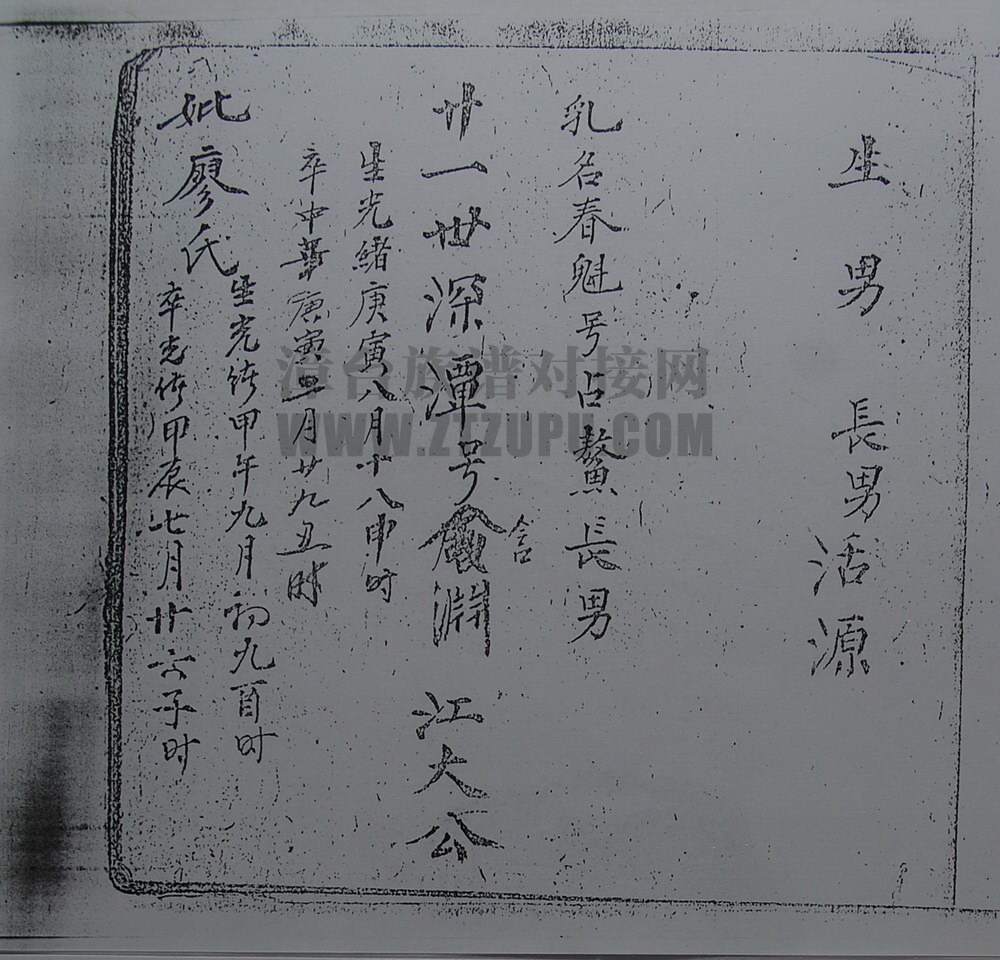 生男 長男活源
乳名春魁号占鰲長男
廿一世深潭号淵 江大公
含
生光緒庚寅八月十八申时
卒中華庚寅五月廿九丑时
妣廖氏
生光緒甲午九月初九酉时
卒光緒甲辰七月廿六子时
漳台族谱对接网
WWW.ZTZUPU.COM